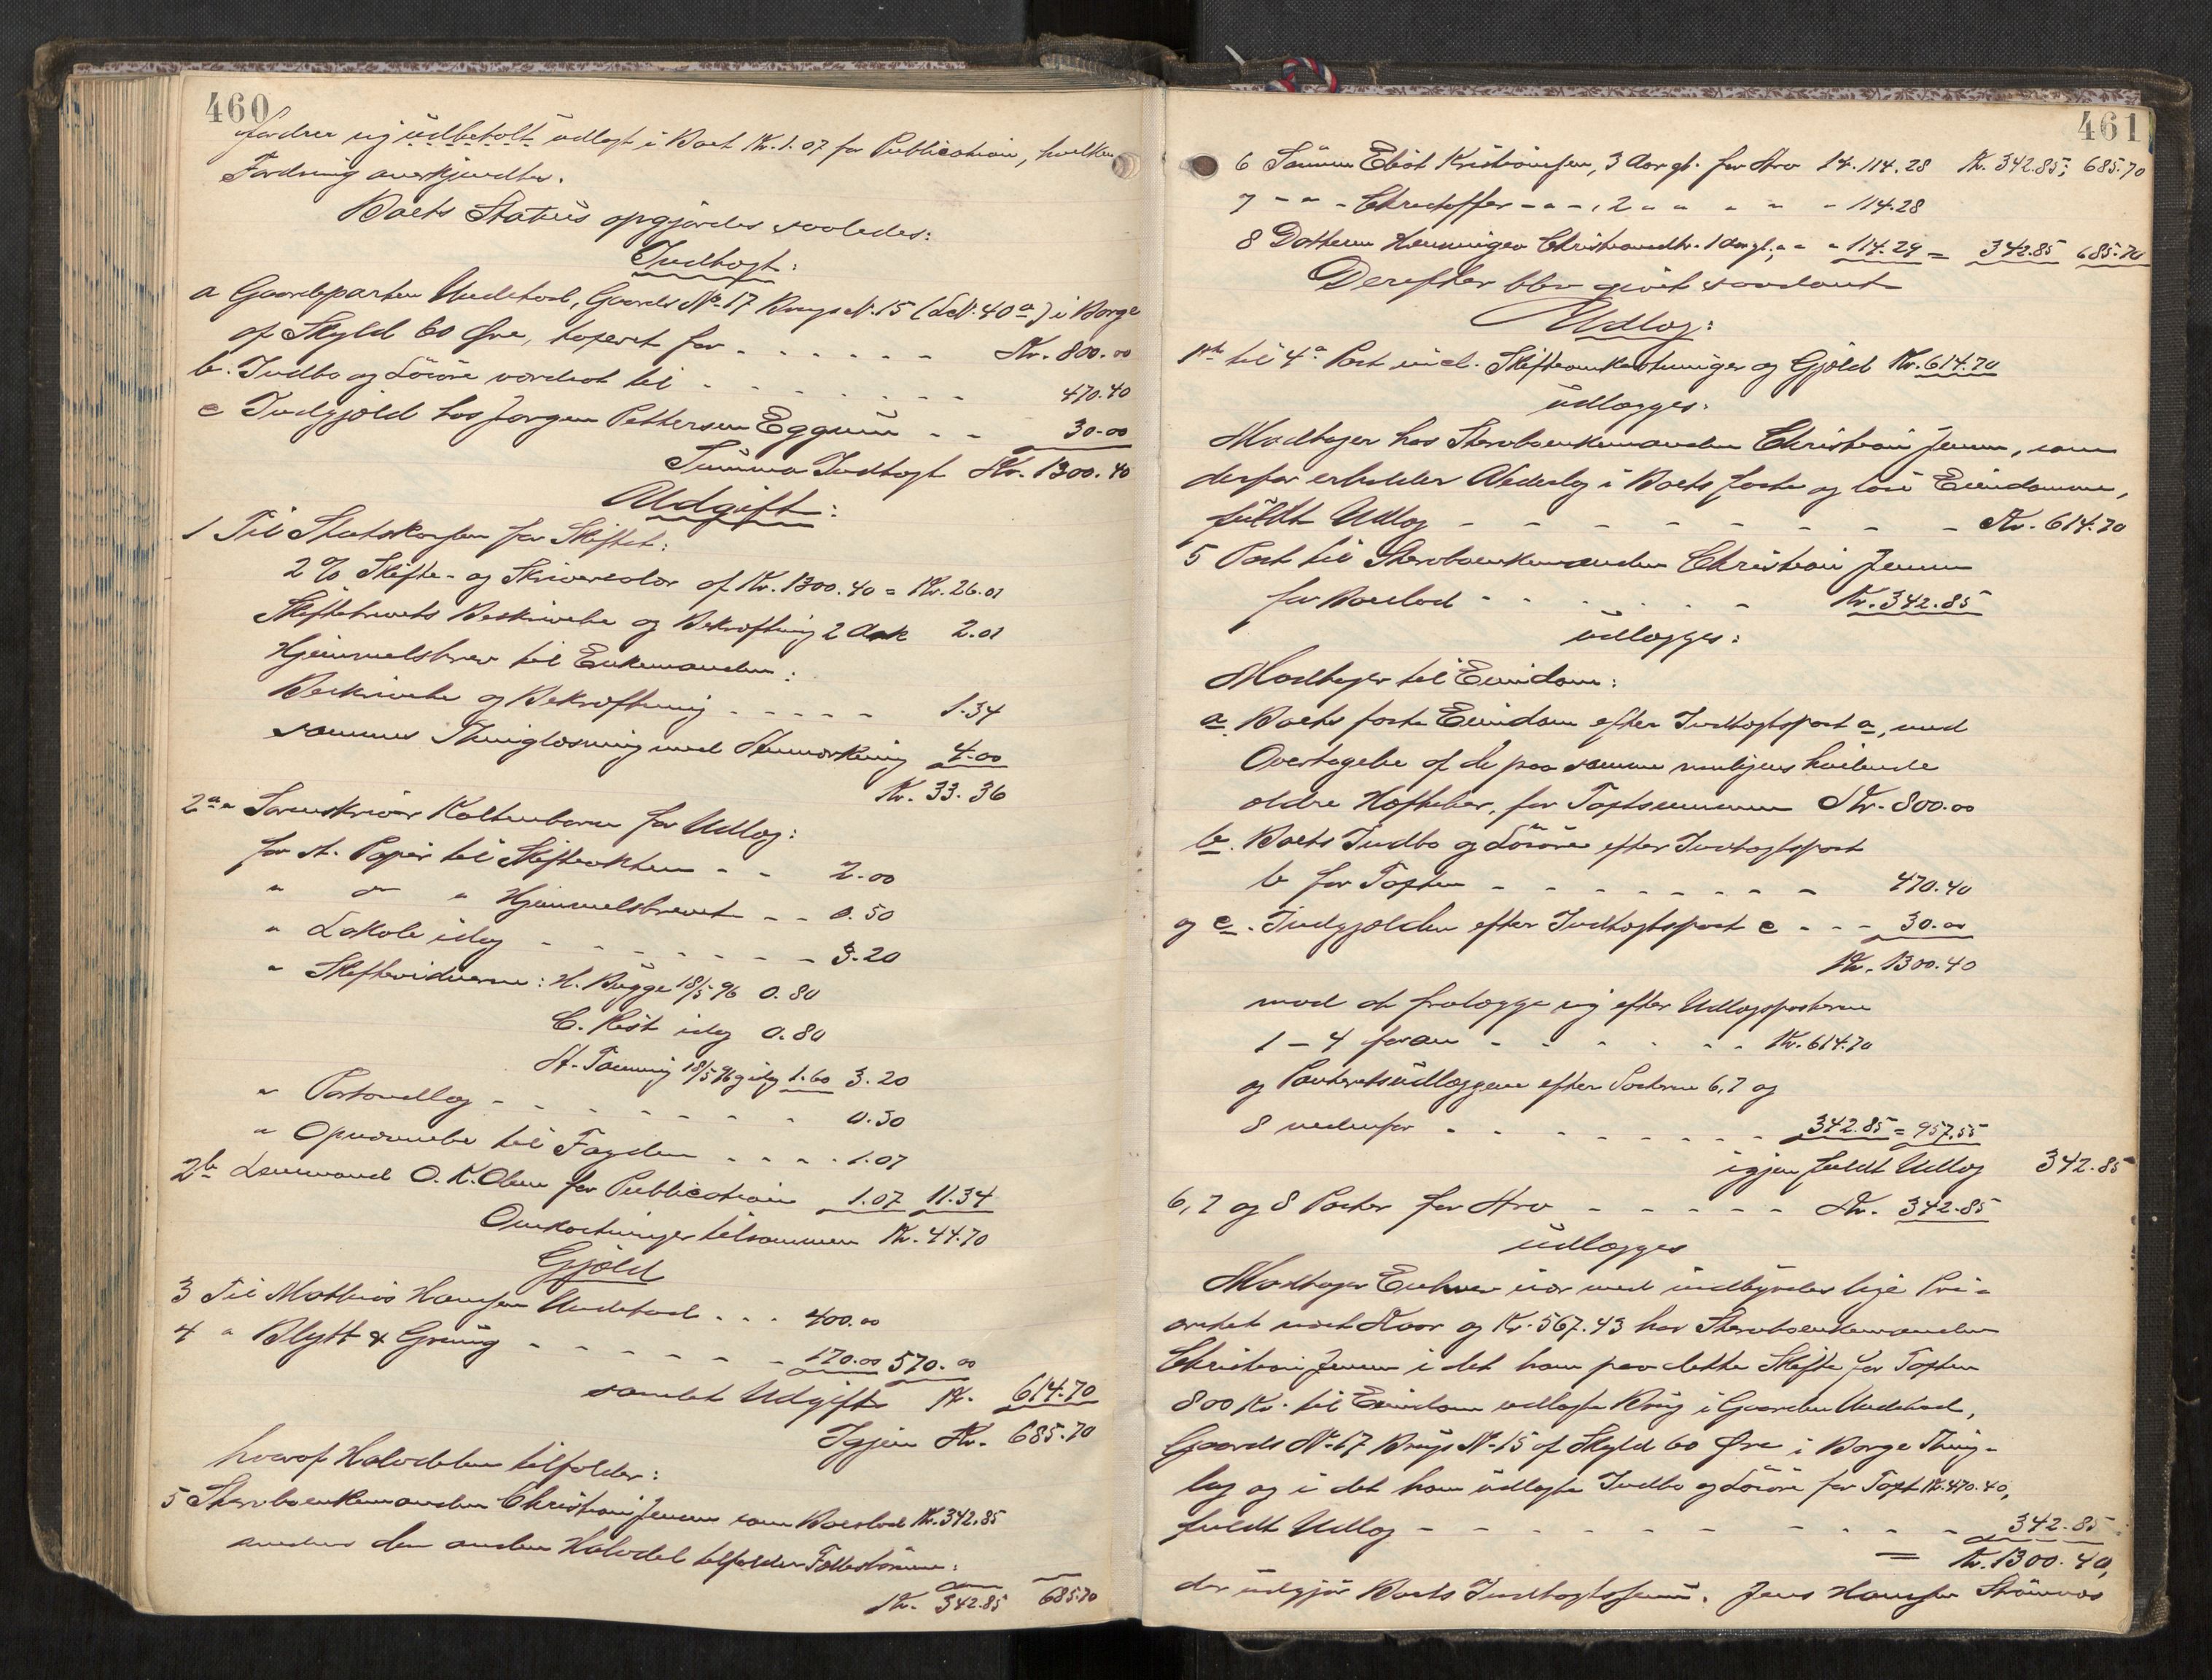 460
fordrer sig udbetalt udlagt i Boet Kr. 1.07 for Publication, hvilken
Fordring anerkjendtes.
Boets Status opgjordes saaledes:
Indtægt:
a Gaardsparten Undstad, Gaards No. 17 Brugs No. 15 (L.N. 40a) i Borge
af Skyld 60 Øre, taxeret for - - - - - - Kr. 800.00
b. Indbo og Løsøre vurderet til - - - - - - 470.40
c Indgjæld hos Jørgen Pettersen Eggum - - 30.00
Summa Indtægt Kr. 1300.40
Udgift:
1 Til Statskassen for Skiftet:
2 % Skifte- og Skriversalær af Kr. 1300.40 = Kr. 26.01
Skiftebrevets Beskrivelse og Bekræftning 2 Ark 2.01
Hjemmelsbrev til Enkemanden:
Beskrivelse og Bekræftning - - - - - 1.34
sammes Thinglæsning med Anmærkning 4.00
Kr. 33.36
2a " Sorenskriver Koltenborn for Udlæg:
for st. Papir til Skifteakten - - 2.00
" do " Hjemmelsbrevet - - 0.50
" Lokale idag - - - - - - - 3.20
" Skiftevidnerne: H. Bugge 18/5 96 0.80
C. Rist idag 0.80
A. Tanning 18/5 96 og idag 1.60 3.20
" Portoudlæg - - - - - - - - 0.50
" Opnævnelse til Fogden - - - - 1.07
2b Lensmand O. K. Olsen for Publication 1.07 11.34
Omkostninger tilsammen Kr. 44.70
Gjæld
3 Til Mathias Hansen Undstad - - - 400.00
4 " Blytt & Grung - - - - - - 170.00 570.00
samlet Udgift Kr. 614.70
Igjen Kr. 685.70
hvoraf Halvdelen tilfalder:
5 Stervboenkemanden Christian Jensen som Boeslod Kr. 342.85
medens den anden Halvdel tilfalder Fællesbørnene:
Kr. 342.85 685.70
461
6 Sønnen Eliot Kristiansen, 3 Aar gl. for Arv Kr. 114.28 Kr. 342.85; 685.70
7 - " - Christoffer - " - , 2 " " " " " 114.28
8 Datteren Henninge Christiansdtr. 1 Aar gl. " " " 114.29 = 342.85 685.70
Derefter blev gjort saadant
Udlæg:
1ste til 4de Post incl. Skifteomkostninger og Gjæld Kr. 614.70
udlægges:
Modtager hos Stervboenkemanden Christian Jensen, som
derfor erholder Vederlag i Boets faste og løse Eiendomme,
fuldt Udlæg - - - - - - - - - Kr. 614.70
5 Post til Stervboenkemanden Christian Jensen
for Boeslod - - - - - - Kr. 342.85
udlægges:
Modtager til Eiendom:
a. Boets faste Eiendom efter Indtægtspost a, med
Overtagelse af de paa samme muligens hvilende
ældre Hæftelser, for Taxtsummen Kr. 800.00
b. Boets Indbo og Løsøre efter Indtægtspost
b for Taxten - - - - - - - - 470.40
og c. Indgjælden efter Indtægtspost c - - - 30.00
Kr. 1300.40
mod at fralægge sig efter Udlægsposterne
1 - 4 foran - - - - - - - Kr. 614.70
og Panteretsudlæggene efter Posterne 6, 7 og
8 nedenfor - - - - - - - - 342.85 = 957.55
igjen fuldt Udlæg 342.85
6, 7 og 8 Poster for Arv - - - - - Kr. 342.85
udlægges
Modtager Enhver især med indbyrdes lige Pri-
oritet næst Kaar og Kr. 567.43 hos Stervboenkemanden
Christian Jensen i det ham paa dette Skifte for Taxten
800 Kr. til Eiendom udlagte Brug i Gaarden Undstad,
Gaards No. 17 Brugs No. 15 af Skyld 60 Øre i Borge Thing-
lag og i det ham udlagte Indbo og Løsøre for Taxt Kr. 470.40,
fuldt Udlæg - - - - - - - - - - 342.85
= Kr. 1300.40,
der udgjør Boets Indtægtssum. Jens Hansen